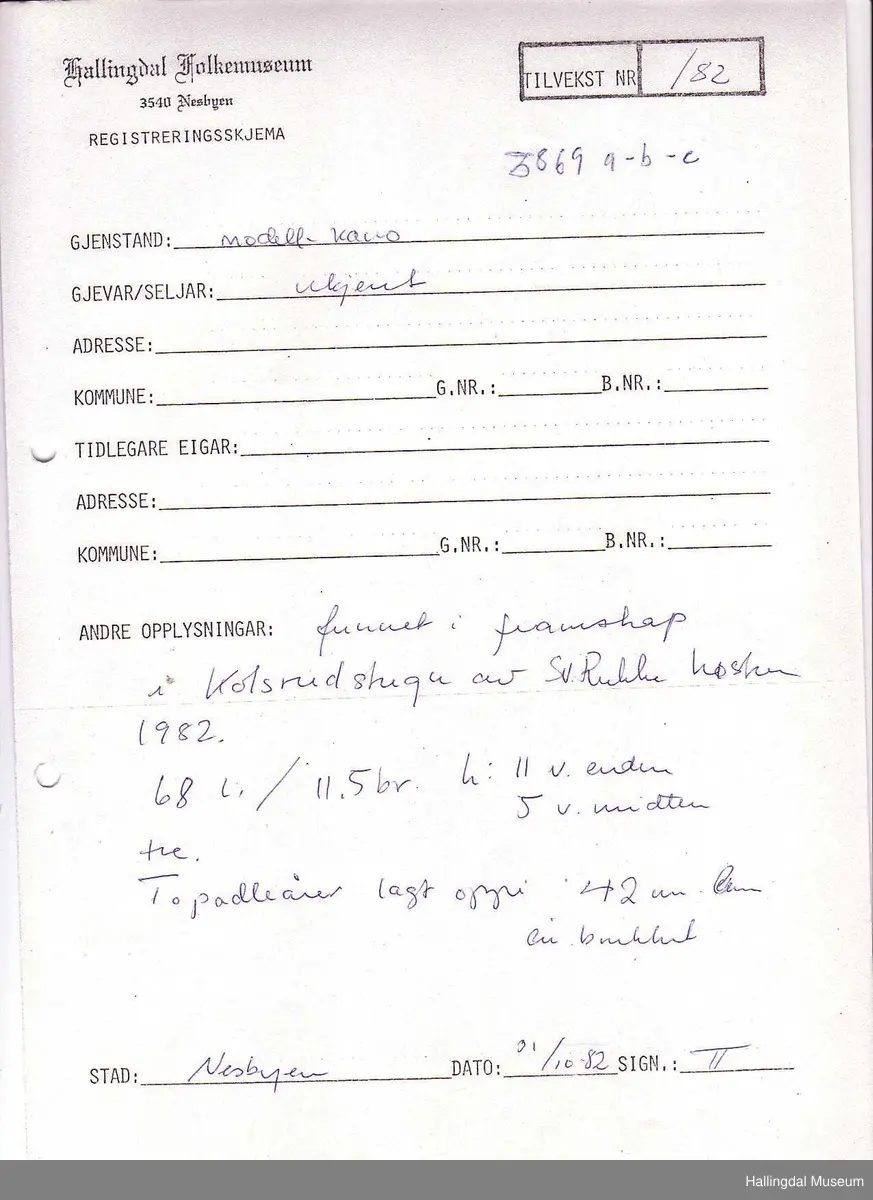 Hallingdal Folkemuseum
3540 Nesbyen
REGISTRERINGSSKJEMA
TILVEKST NR /82
3869 a-b-c
GJENSTAND: modell-kano
GJEVAR/SELJAR: ukjent
ADRESSE:
KOMMUNE: G.NR.: B.NR.:
TIDLEGARE EIGAR:
ADRESSE:
KOMMUNE: G.NR.: B.NR.:
ANDRE OPPLYSNINGAR: funnet i framskap
i Kolsrudstugu av Sv. Rukke høsten
1982.
68 l. / 11.5 br. h: 11 v. enden
5 v. midten
tre.
To padleårer lagt oppi 42 cm
ei brukket
STAD: Nesbyen DATO: /10-82 SIGN.: TT
Hallingdal Museum